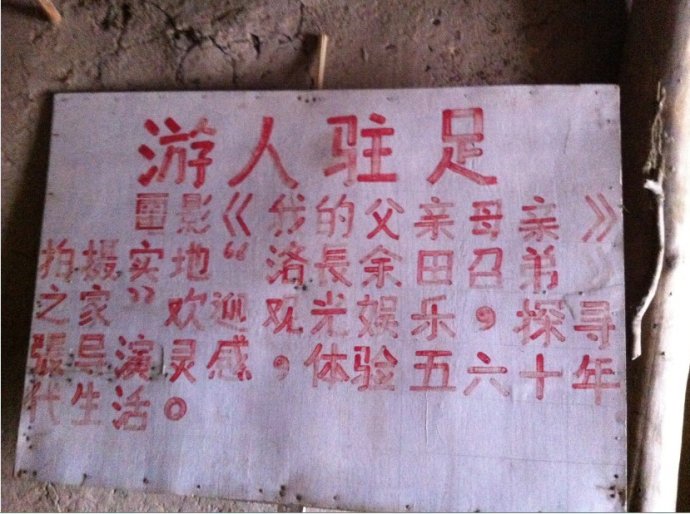 游人驻足
電影《我的父亲母亲》
拍摄实地“洛長余田召弟》
之家”欢迎观光娱乐，探寻
張导演灵感，体验五六十年
代生活。